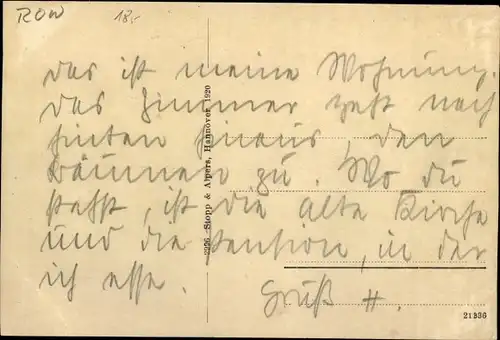 ROW 18,-
das ist meine Wohnung.
Das Zimmer geht nach
hinten hinaus, den
Bäumen zu. Wo du
stehst, ist die alte Kirche
und die Pension, in der
ich esse.
Gruß H.
2996 Stopp & Alpers, Hannover 1920
21336